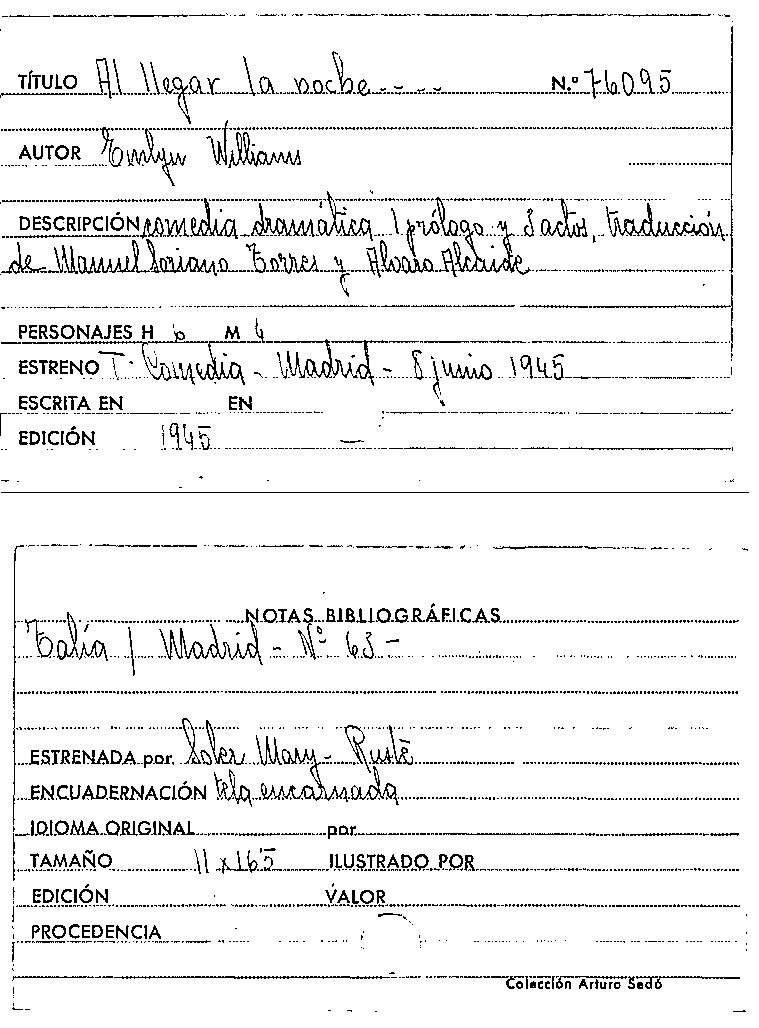 TÍTULO Al llegar la noche---- N.º 76095
AUTOR Emlyn Williams
DESCRIPCIÓN comedia dramática 1 prólogo y 3 actos, traducción
de Manuel Soriano Torres y Alvaro Alcaide
PERSONAJES H 6 M 4
ESTRENO T. Comedia - Madrid - 8 junio 1945
ESCRITA EN EN
EDICIÓN 1945 —
NOTAS BIBLIOGRÁFICAS
Talía / Madrid - Nº 63 -
ESTRENADA por Soler Mary -
ENCUADERNACIÓN tela encarnada
IDIOMA ORIGINAL por
TAMAÑO 11 x 165 ILUSTRADO POR
EDICIÓN VALOR
PROCEDENCIA
Colección Arturo Sedó